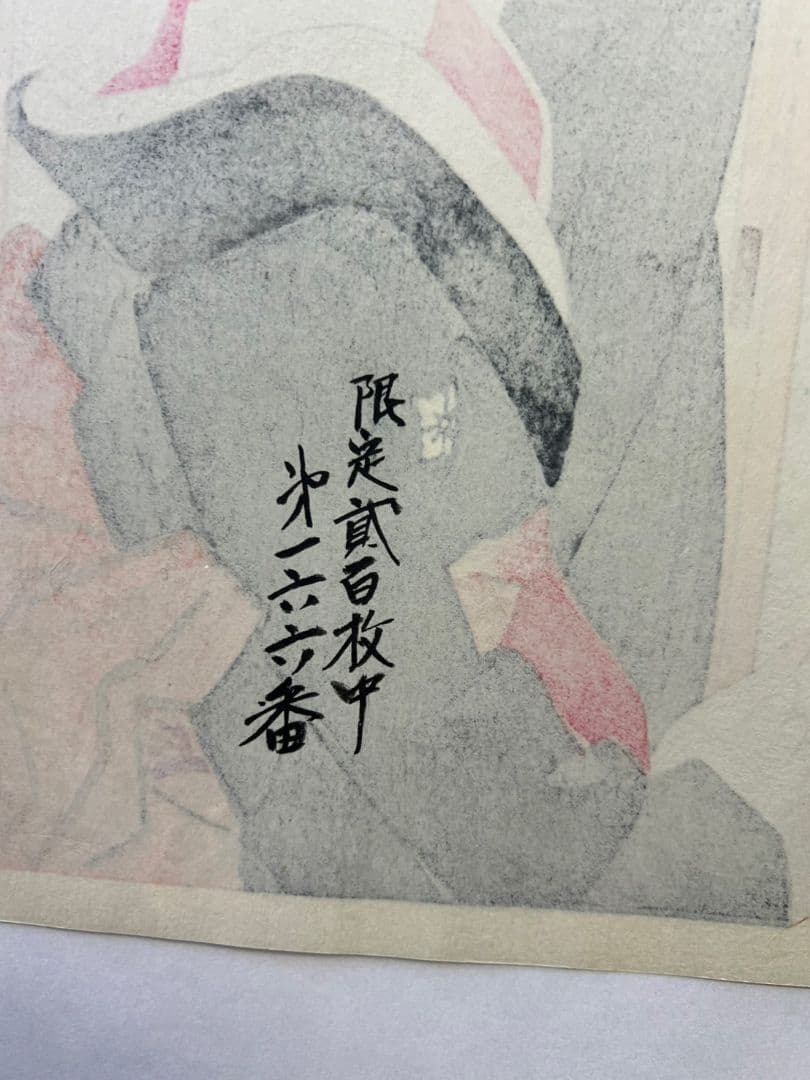 限定貳百枚中
第一六六番